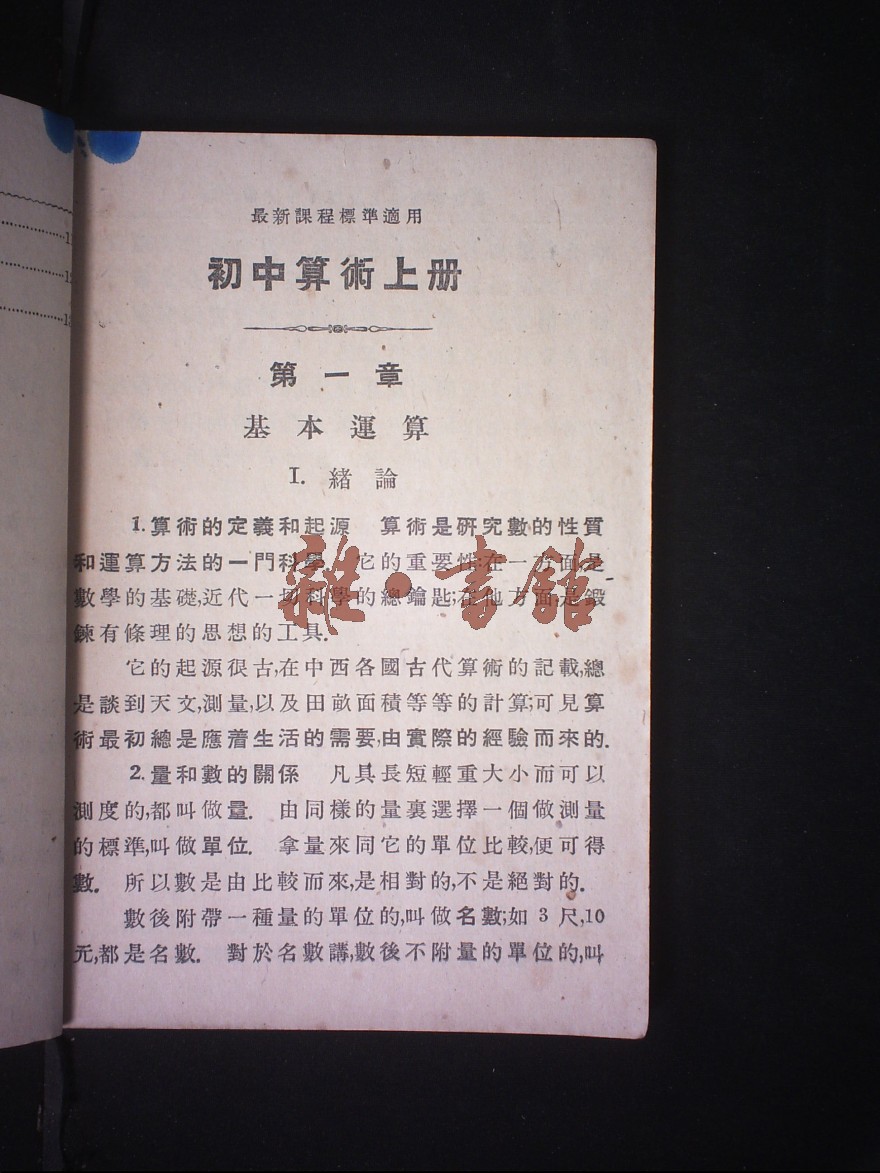 最新課程標準適用
初中算術上册
第一章
基本運算
I. 緒論
1. 算術的定義和起源 算術是研究數的性質
和運算方法的一門科學. 它的重要性:在一方面是
數學的基礎,近代一切科學的總鑰匙;在他方面,是鍛
鍊有條理的思想的工具.
它的起源很古,在中西各國古代算術的記載,總
是談到天文,測量,以及田畝面積等等的計算;可見算
術最初總是應着生活的需要,由實際的經驗而來的.
2. 量和數的關係 凡具長短輕重大小而可以
測度的,都叫做量. 由同樣的量裏選擇一個做測量
的標準,叫做單位. 拿量來同它的單位比較,便可得
數. 所以數是由比較而來,是相對的,不是絕對的.
數後附帶一種量的單位的,叫做名數;如 3 尺,10
元,都是名數. 對於名數講,數後不附量的單位的,叫
雜·書館